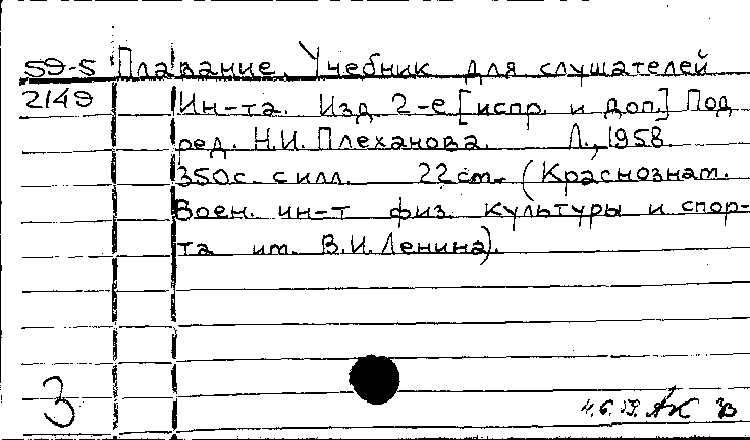 59-5 Плавание. Учебник для слушателей
2149 Ин-та. Изд. 2-е [испр. и доп.] Под
ред. Н.И. Плеханова. Л., 1958.
350с. с илл. 22 cm. (Краснознам.
Воен. ин-т физ. культуры и спор-
та им. В.И. Ленина).
3